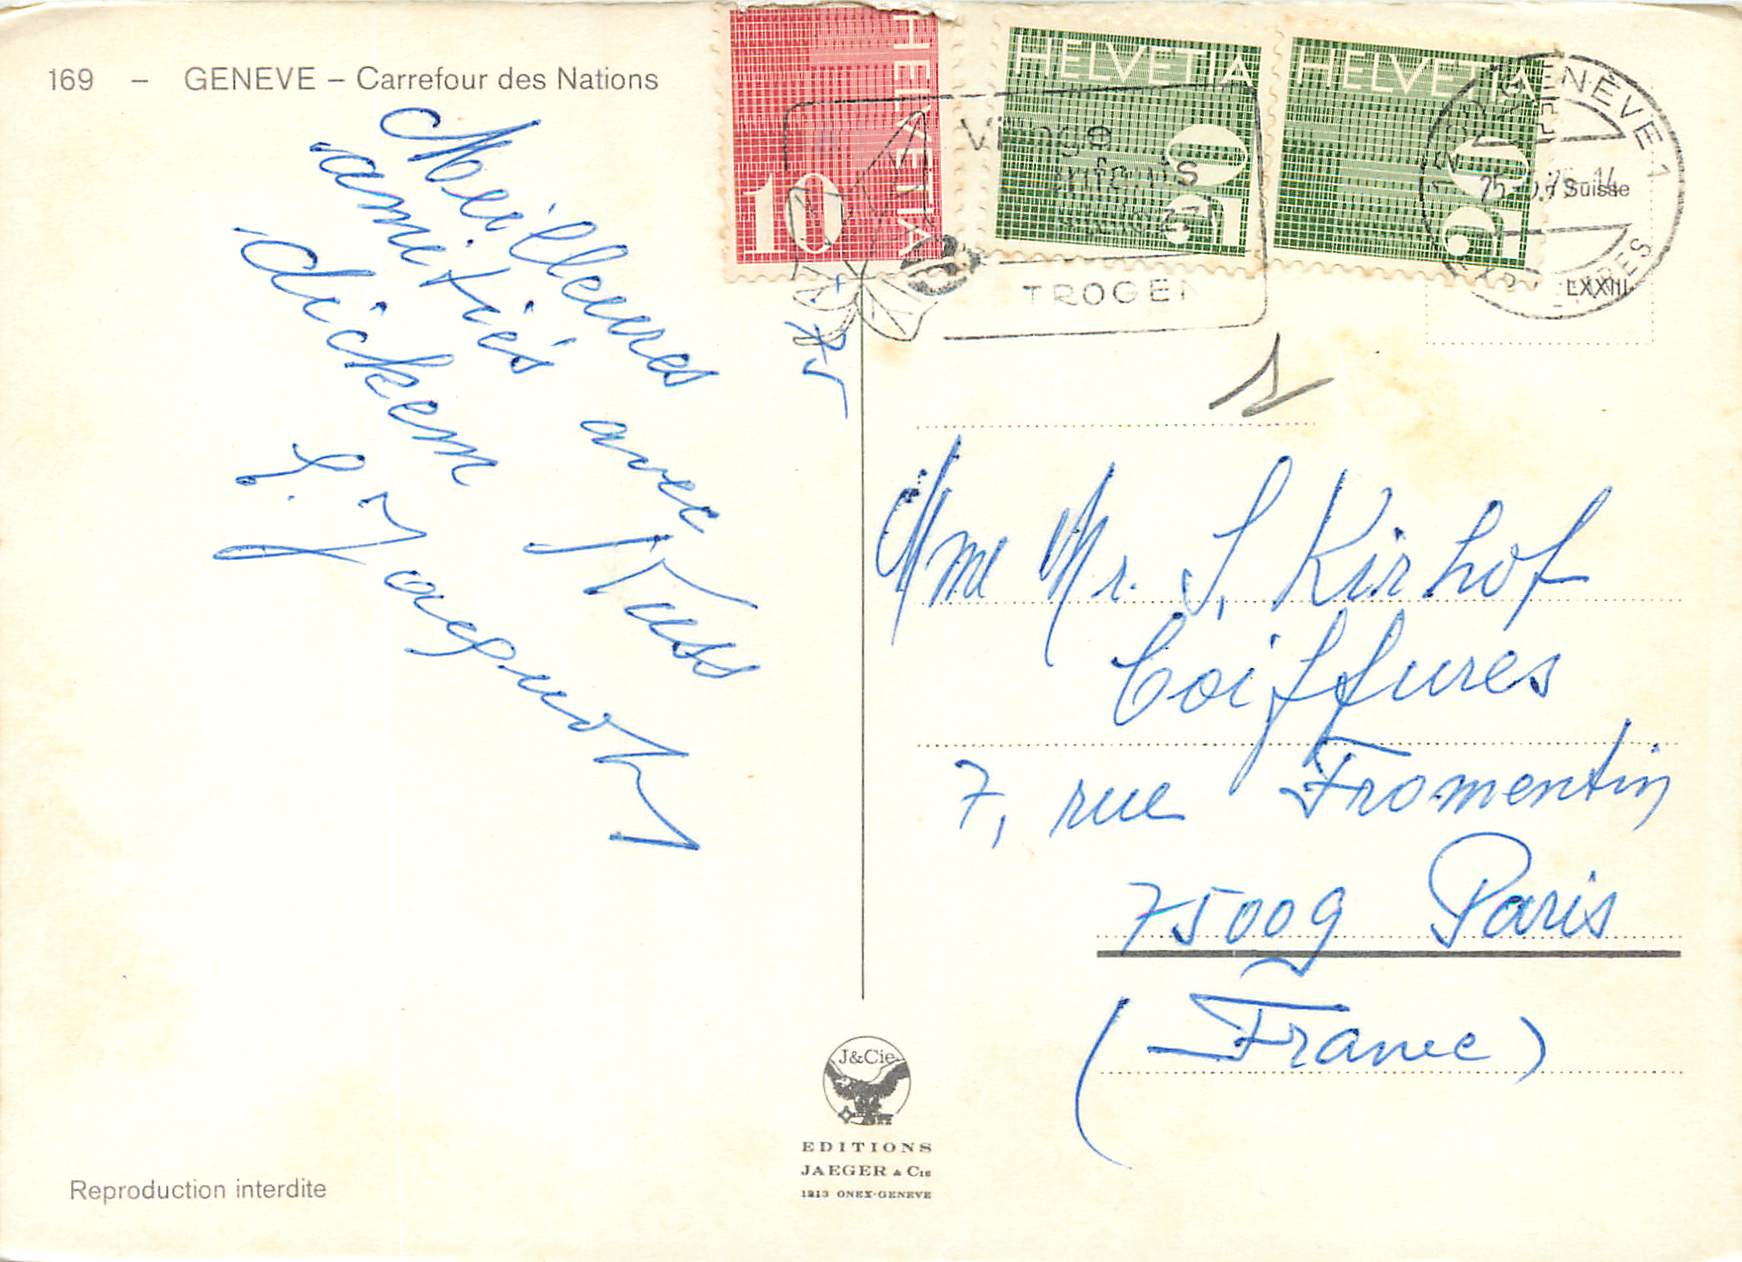 169 – GENEVE – Carrefour des Nations
Meilleures
amitiés avec
dickem Kuss
HELVETIA
10
HELVETIA
50
HELVETIA
50
Village
enfants
TROGEN
GENÈVE 1
Suisse
LXXIII
Mme Mr. S. Kirhof
Coiffures
7, rue Fromentin
75009 Paris
(France)
J&Cie
EDITIONS
JAEGER & Cie
1213 ONEX-GENEVE
Reproduction interdite